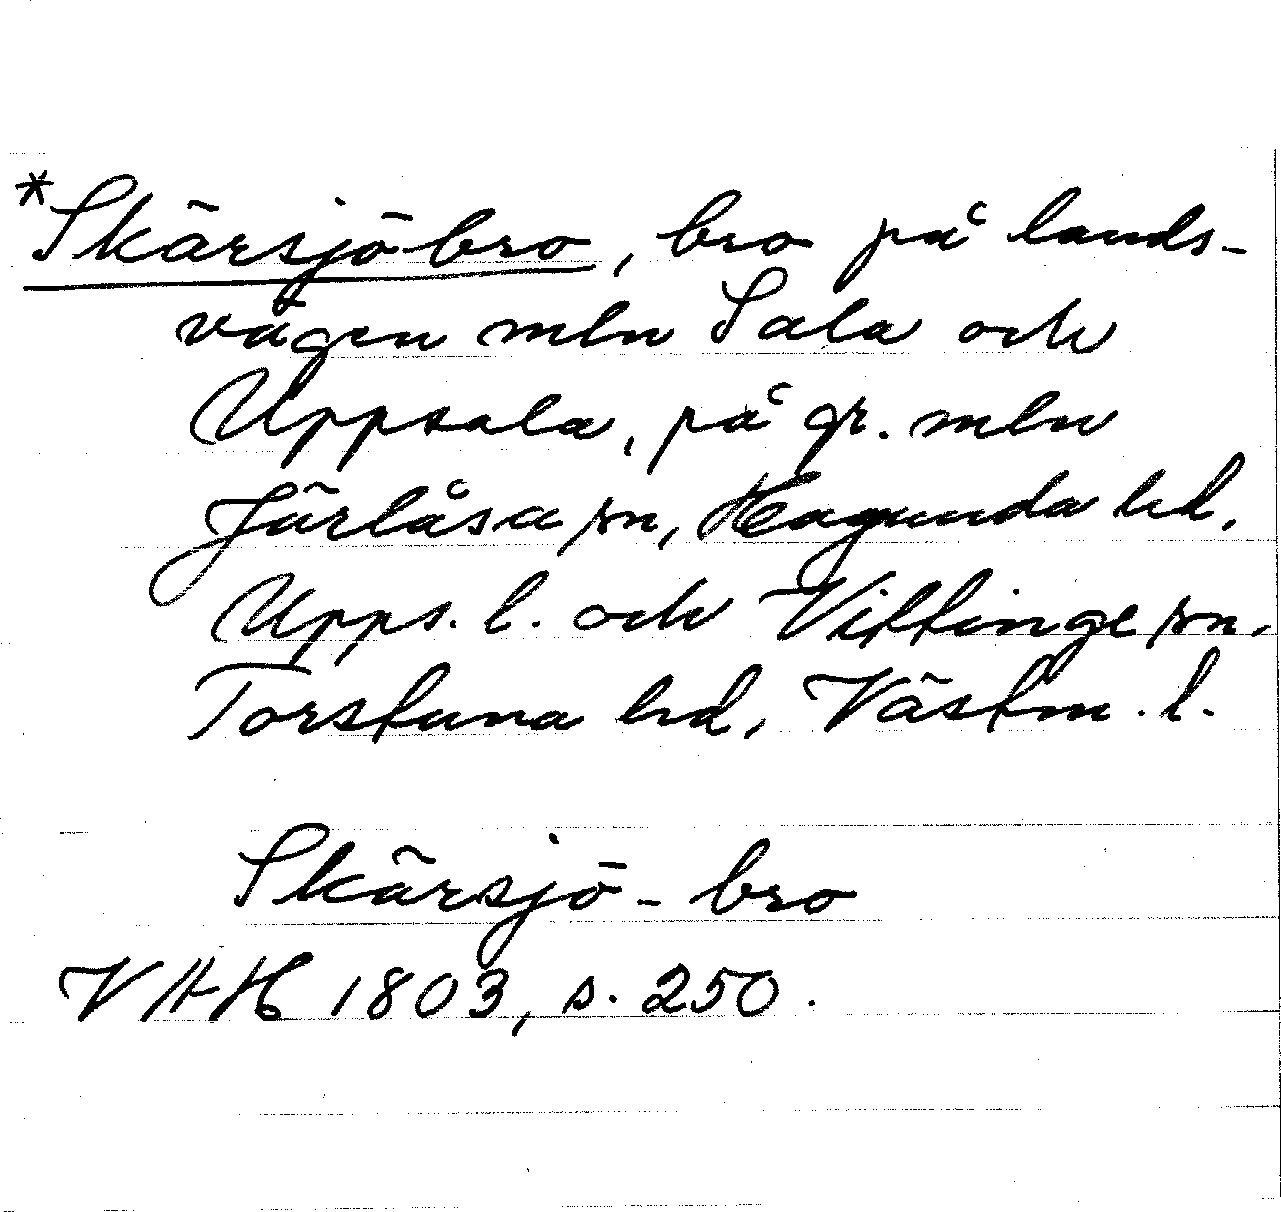 *Skärsjöbro, bro på lands-
vägen mln Sala och
Uppsala, på gr. mln
Järlåsa sn, Hagunda hd,
Upps. l. och Vittinge sn.
Torstuna hd, Västm. l.
Skärsjö-bro
VAH 1803, s. 250.